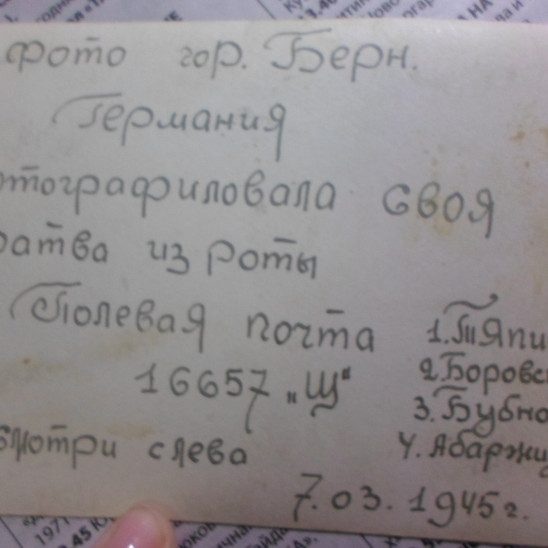 фото гор. Берн.
Германия
отографиловала своя
ратва из роты
Полевая почта
16657 „Щ“
1. Тяпи
2. Боровс
3. Бубно
4. Абаржи
смотри слева
7. 03. 1945 г.